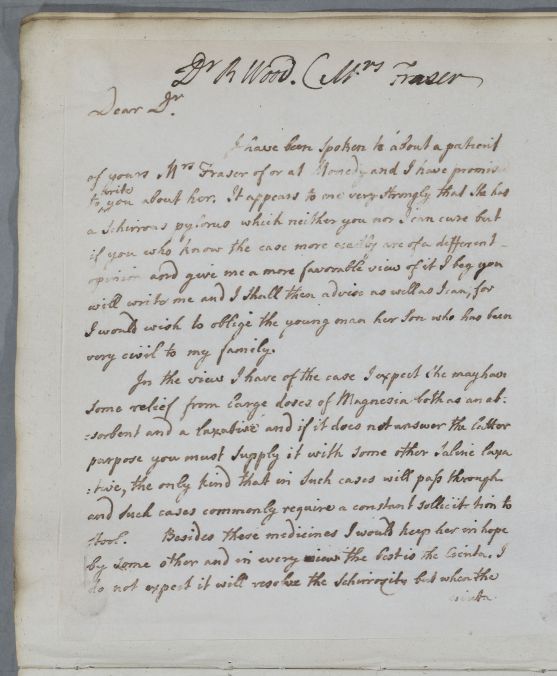 Dr R Wood. (Mrs Fraser
Dear Dr
I have been spoken to about a patient
of yours Mrs Fraser of or at and I have promis
write
to you about her. It appears to me very strongly that she has
a Schirrous pylorus which neither you nor I can cure but
if you who know the case more exactly are of a different
opinion and give me a more favorable view of it I beg you
will write me and I shall then advise as well as I can, for
I would wish to oblige the young man her Son who has been
very civil to my family.
In the view I have of the case I expect she may have
some relief from large doses of Magnesia both as an ab-
:sorbent and a laxative and if it does not answer the latter
purpose you must supply it with some other Saline laxa
:tive, the only kind that in such cases will pass through
and such cases commonly require a constant sollicitation to
stool. Besides these medicines I would keep her in hope
by some other and in every view the best is the Cicuta. I
do not expect it will resolve the Schirrosity but when the
cicuta